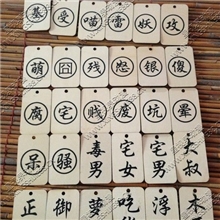 基 受 喵 雷 妖 攻
萌 囧 残 怨 银 傻
腐 宅 贱 坑 晕
呆 骚 毒男 宅女 宅男 大叔
正 御 萝 吃 浮 木